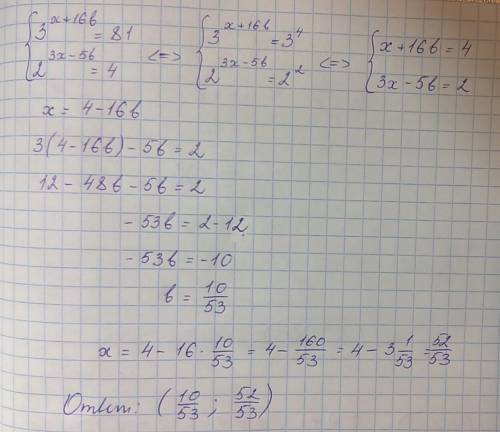 { 3^(x+16b) = 81 <=> { 3^(x+16b) = 3^4 <=> { x+16b = 4
{ 2^(3x-5b) = 4 { 2^(3x-5b) = 2^2 { 3x-5b = 2
x = 4-16b
3(4-16b)-5b = 2
12-48b-5b = 2
-53b = 2-12
-53b = -10
b = 10/53
x = 4-16·10/53 = 4-160/53 = 4-3 1/53 = 52/53
Ответ: (10/53; 52/53)